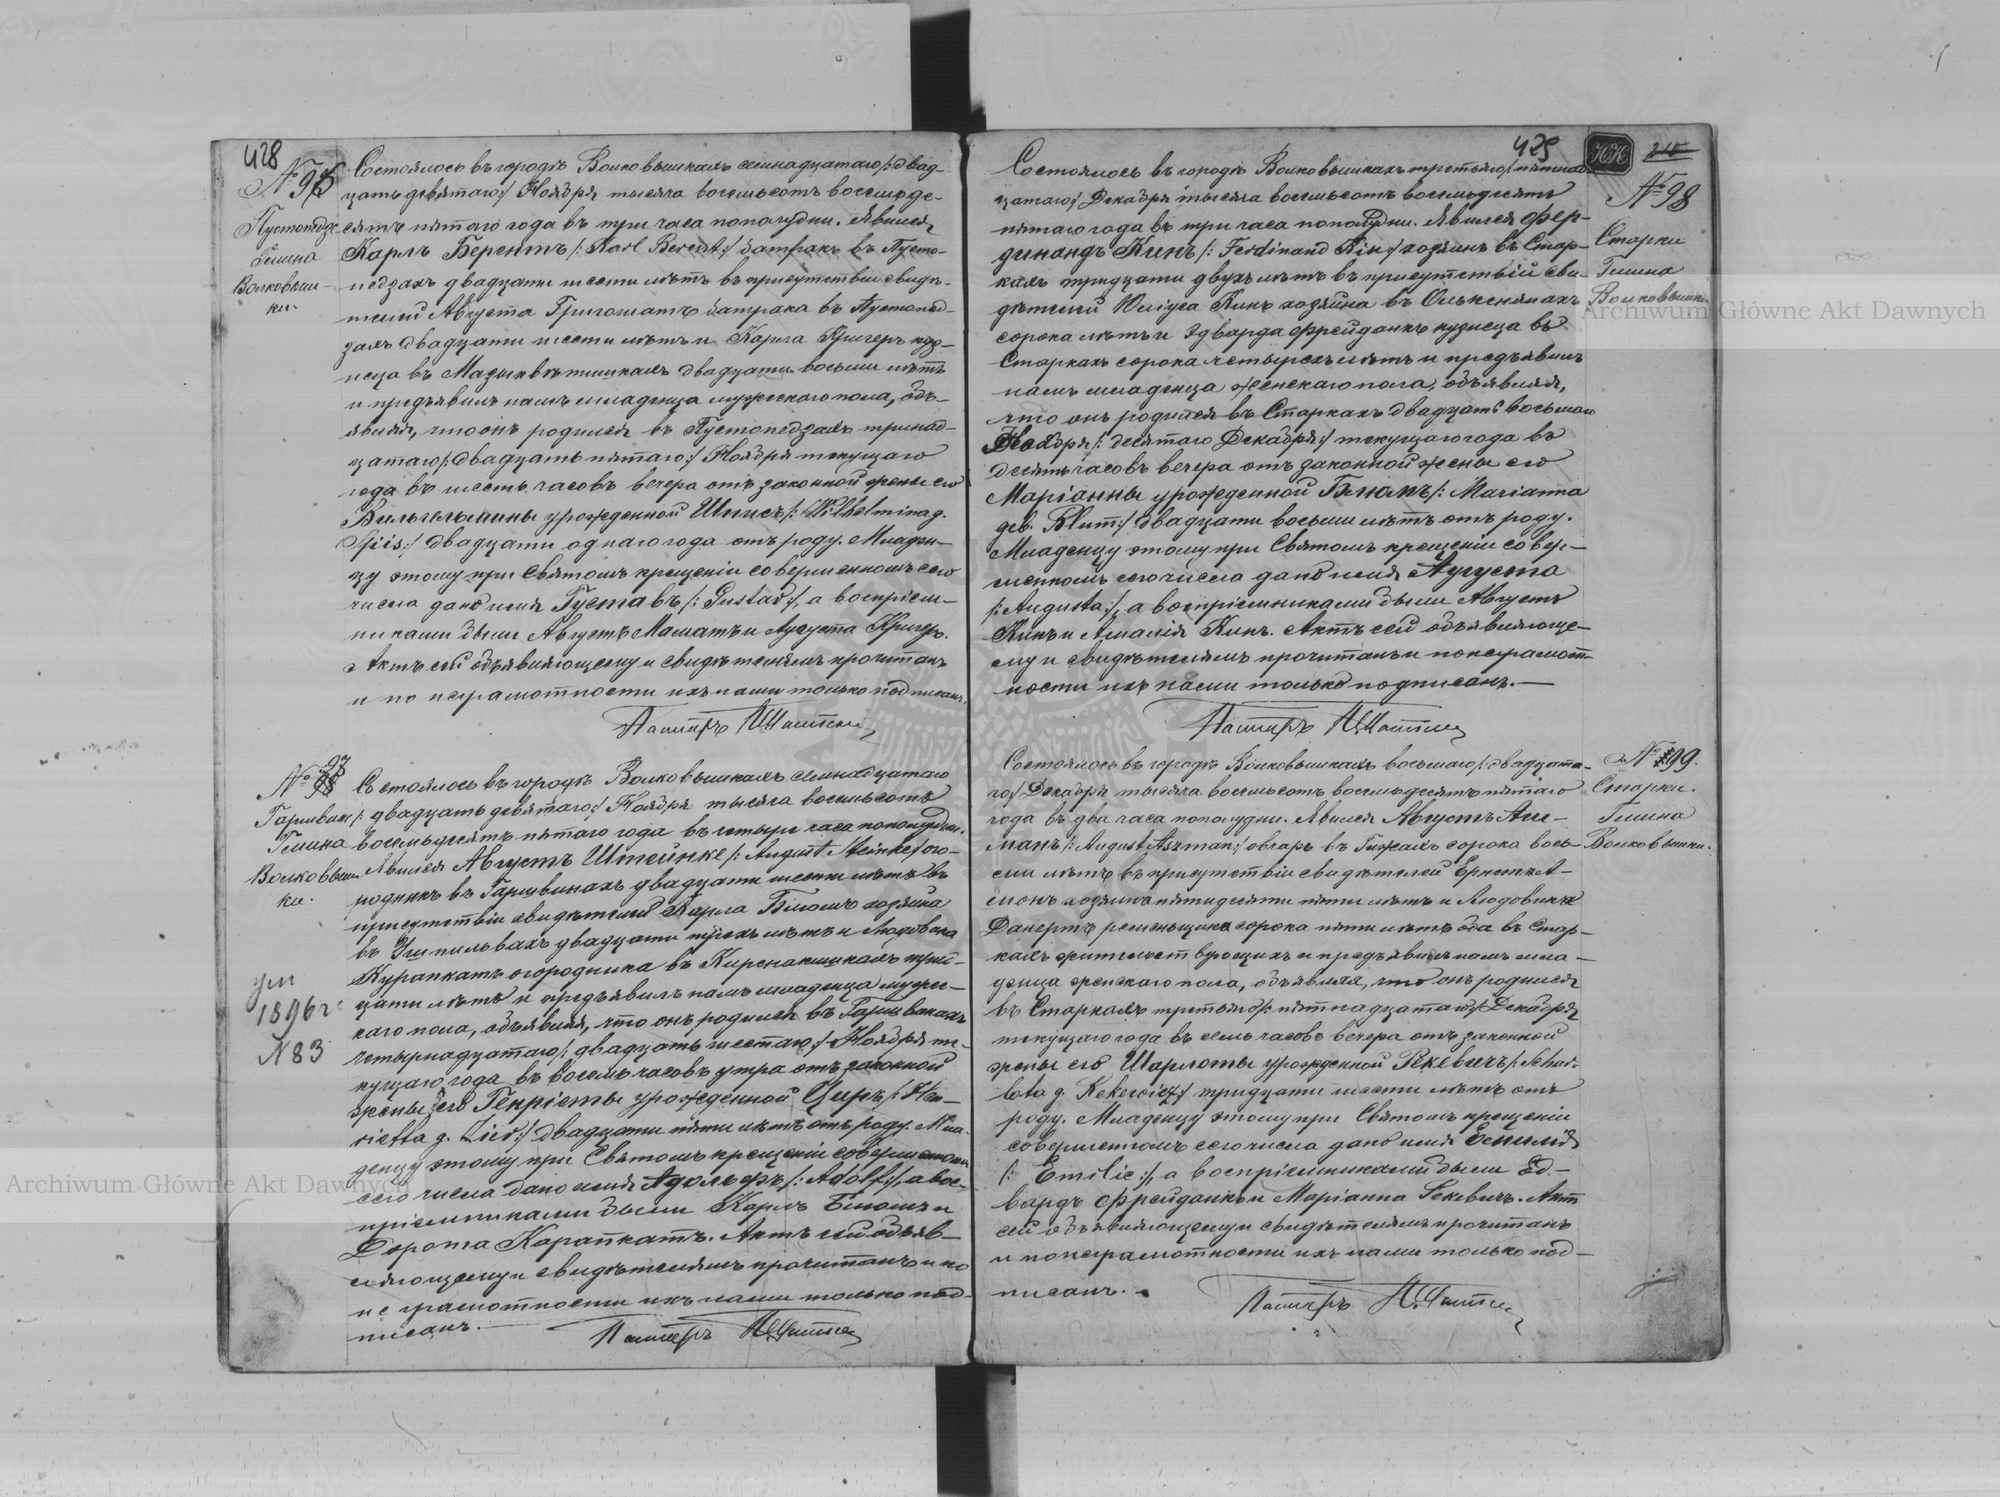 428
№ 96
Пустопедзе
Гмина
Волковыш-
ки.
Состоялось въ городѣ Волковышкахъ семнадцатаго /: двад-
цать девятаго :/ Ноября тысяча восемьсотъ восемьде-
сятъ пятаго года въ три часа пополудни. Явился
Карлъ Берентъ /: Karl Berent :/ батракъ въ Пусто-
педзахъ двадцати шести лѣтъ въ присутствіи свидѣ-
телей Августа Григошатъ батрака въ Пустопед-
захъ двадцати шести лѣтъ и Карла Кригеръ куз-
неца въ двадцати восьми лѣтъ
и предъявилъ намъ младенца мужескаго пола, объ-
являя, что онъ родился въ Пустопедзахъ тринад-
цатаго /: двадцать пятаго :/ Ноября текущаго
года въ шесть часовъ вечера отъ законной жены его
Вильгельмины урожденной Шписъ /: Wilhelmina g.
Spiis :/ двадцати одного года отъ роду. Младен-
цу этому при Святомъ крещеніи совершенномъ сего
числа дано имя Густавъ /: Gustav :/, а воспріем-
никами были Августъ Маматъ и Аугуста Кригеръ.
Актъ сей объявляющему и свидѣтелямъ прочитанъ
и по неграмотности ихъ нами только подписанъ.
Пасторъ
№ 97
Гаршвине
Гмина
Волковыш-
ки.
ум
1896 г.
N 83
Состоялось въ городѣ Волковышкахъ семнадцатаго
/: двадцать девятаго :/ Ноября тысяча восемьсотъ
восемьдесятъ пятаго года въ четыре часа пополудни.
Явился Августъ Штейнке /: August Steinke :/ ого-
родникъ въ Гаршвинахъ двадцати шести лѣтъ въ
присутствіи свидѣтелей Карла Блюмъ хозяина
въ двадцати трехъ лѣтъ и Людовика
Курапкатъ огородника въ трид-
цати лѣтъ и предъявилъ намъ младенца мужес-
каго пола, объявляя, что онъ родился въ Гаршвинахъ
четырнадцатаго /: двадцать шестаго :/ Ноября те-
кущаго года въ восемь часовъ утра отъ законной
жены его Генріеты урожденной Циръ /: Hen-
rietta g. Zier :/ двадцати пяти лѣтъ отъ роду. Мла-
денцу этому при Святомъ крещеніи совершенномъ
сего числа дано имя Адольфъ /: Adolf :/, а вос-
пріемниками были Карлъ Блюмъ и
Дорота Карапкатъ. Актъ сей объяв-
ляющему и свидѣтелямъ прочитанъ и по
неграмотности ихъ нами только под-
писанъ.
Пасторъ
429
НК
215
№ 98
Старки
Гмина
Волковышки
Состоялось въ городѣ Волковышкахъ третьяго /: пятнад-
цатаго :/ Декабря тысяча восемьсотъ восемьдесятъ
пятаго года въ три часа пополудни. Явился Фер-
динандъ Кинъ /: Ferdinand Kin :/ хозяинъ въ Стар-
кахъ тридцати двухъ лѣтъ въ присутствіи сви-
дѣтелей Юліуса Кинъ хозяина въ Олькснянахъ
сорока лѣтъ и Эдварда Фрейданкъ кузнеца въ
Старкахъ сорока четырехъ лѣтъ и предъявилъ
намъ младенца женскаго пола, объявляя,
что онъ родился въ Старкахъ двадцать восьмаго
Ноября /: десятаго Декабря :/ текущаго года въ
десять часовъ вечера отъ законной жены его
Маріанны урожденной Блюмъ /: Marianna
geb. Blum :/ двадцати восьми лѣтъ отъ роду.
Младенцу этому при Святомъ крещеніи совер-
шенномъ сего числа дано имя Аугуста
/: Augusta :/, а воспріемниками были Августъ
Кинъ и Амалія Кинъ. Актъ сей объявляюще-
му и свидѣтелямъ прочитанъ и по неграмот-
ности ихъ нами только подписанъ. —
Пасторъ
№ 99.
Старки.
Гмина
Волковышки.
Состоялось въ городѣ Волковышкахъ восьмаго /: двадцата-
го :/ Декабря тысяча восемьсотъ восемьдесятъ пятаго
года въ два часа пополудни. Явился Августъ Асс-
манъ /: August Aszman :/ овчаръ въ сорока вось-
ми лѣтъ въ присутствіи свидѣтелей Ернста А-
хозяина пятидесяти пяти лѣтъ и Людовика
Данертъ сорока пяти лѣтъ оба въ Стар-
кахъ жительствующихъ и предъявилъ намъ мла-
денца женскаго пола, объявляя, что онъ родился
въ Старкахъ третьяго /: пятнадцатаго :/ Декабря
текущаго года въ семь часовъ вечера отъ законной
жены его Шарлоты урожденной Рекевичъ /: Schar-
lota g. Rekewicz :/ тридцати шести лѣтъ отъ
роду. Младенцу этому при Святомъ крещеніи
совершенномъ сего числа дано имя Емилія
/: Emilie :/, а воспріемниками были Эд-
вардъ Фрейданкъ и Маріанна Рекевичъ. Актъ
сей объявляющему и свидѣтелямъ прочитанъ
и по неграмотности ихъ нами только под-
писанъ. —
Пасторъ
Archiwum Główne Akt Dawnych
Archiwum Główne Akt Dawnych